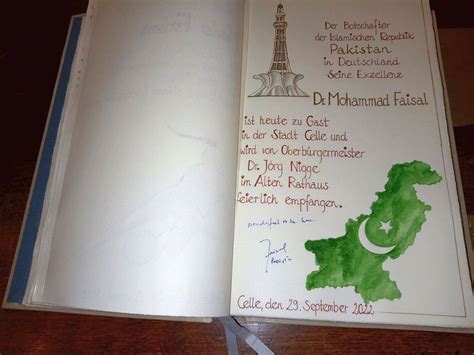 Der Botschafter
der Islamischen Republik
Pakistan
in Deutschland
Seine Exzellenz
Dr Mohammad Faisal
ist heute zu Gast
in der Stadt Celle und
wird von Oberbürgermeister
Dr. Jörg Nigge
im Alten Rathaus
feierlich empfangen.
Celle, den 29. September 2022